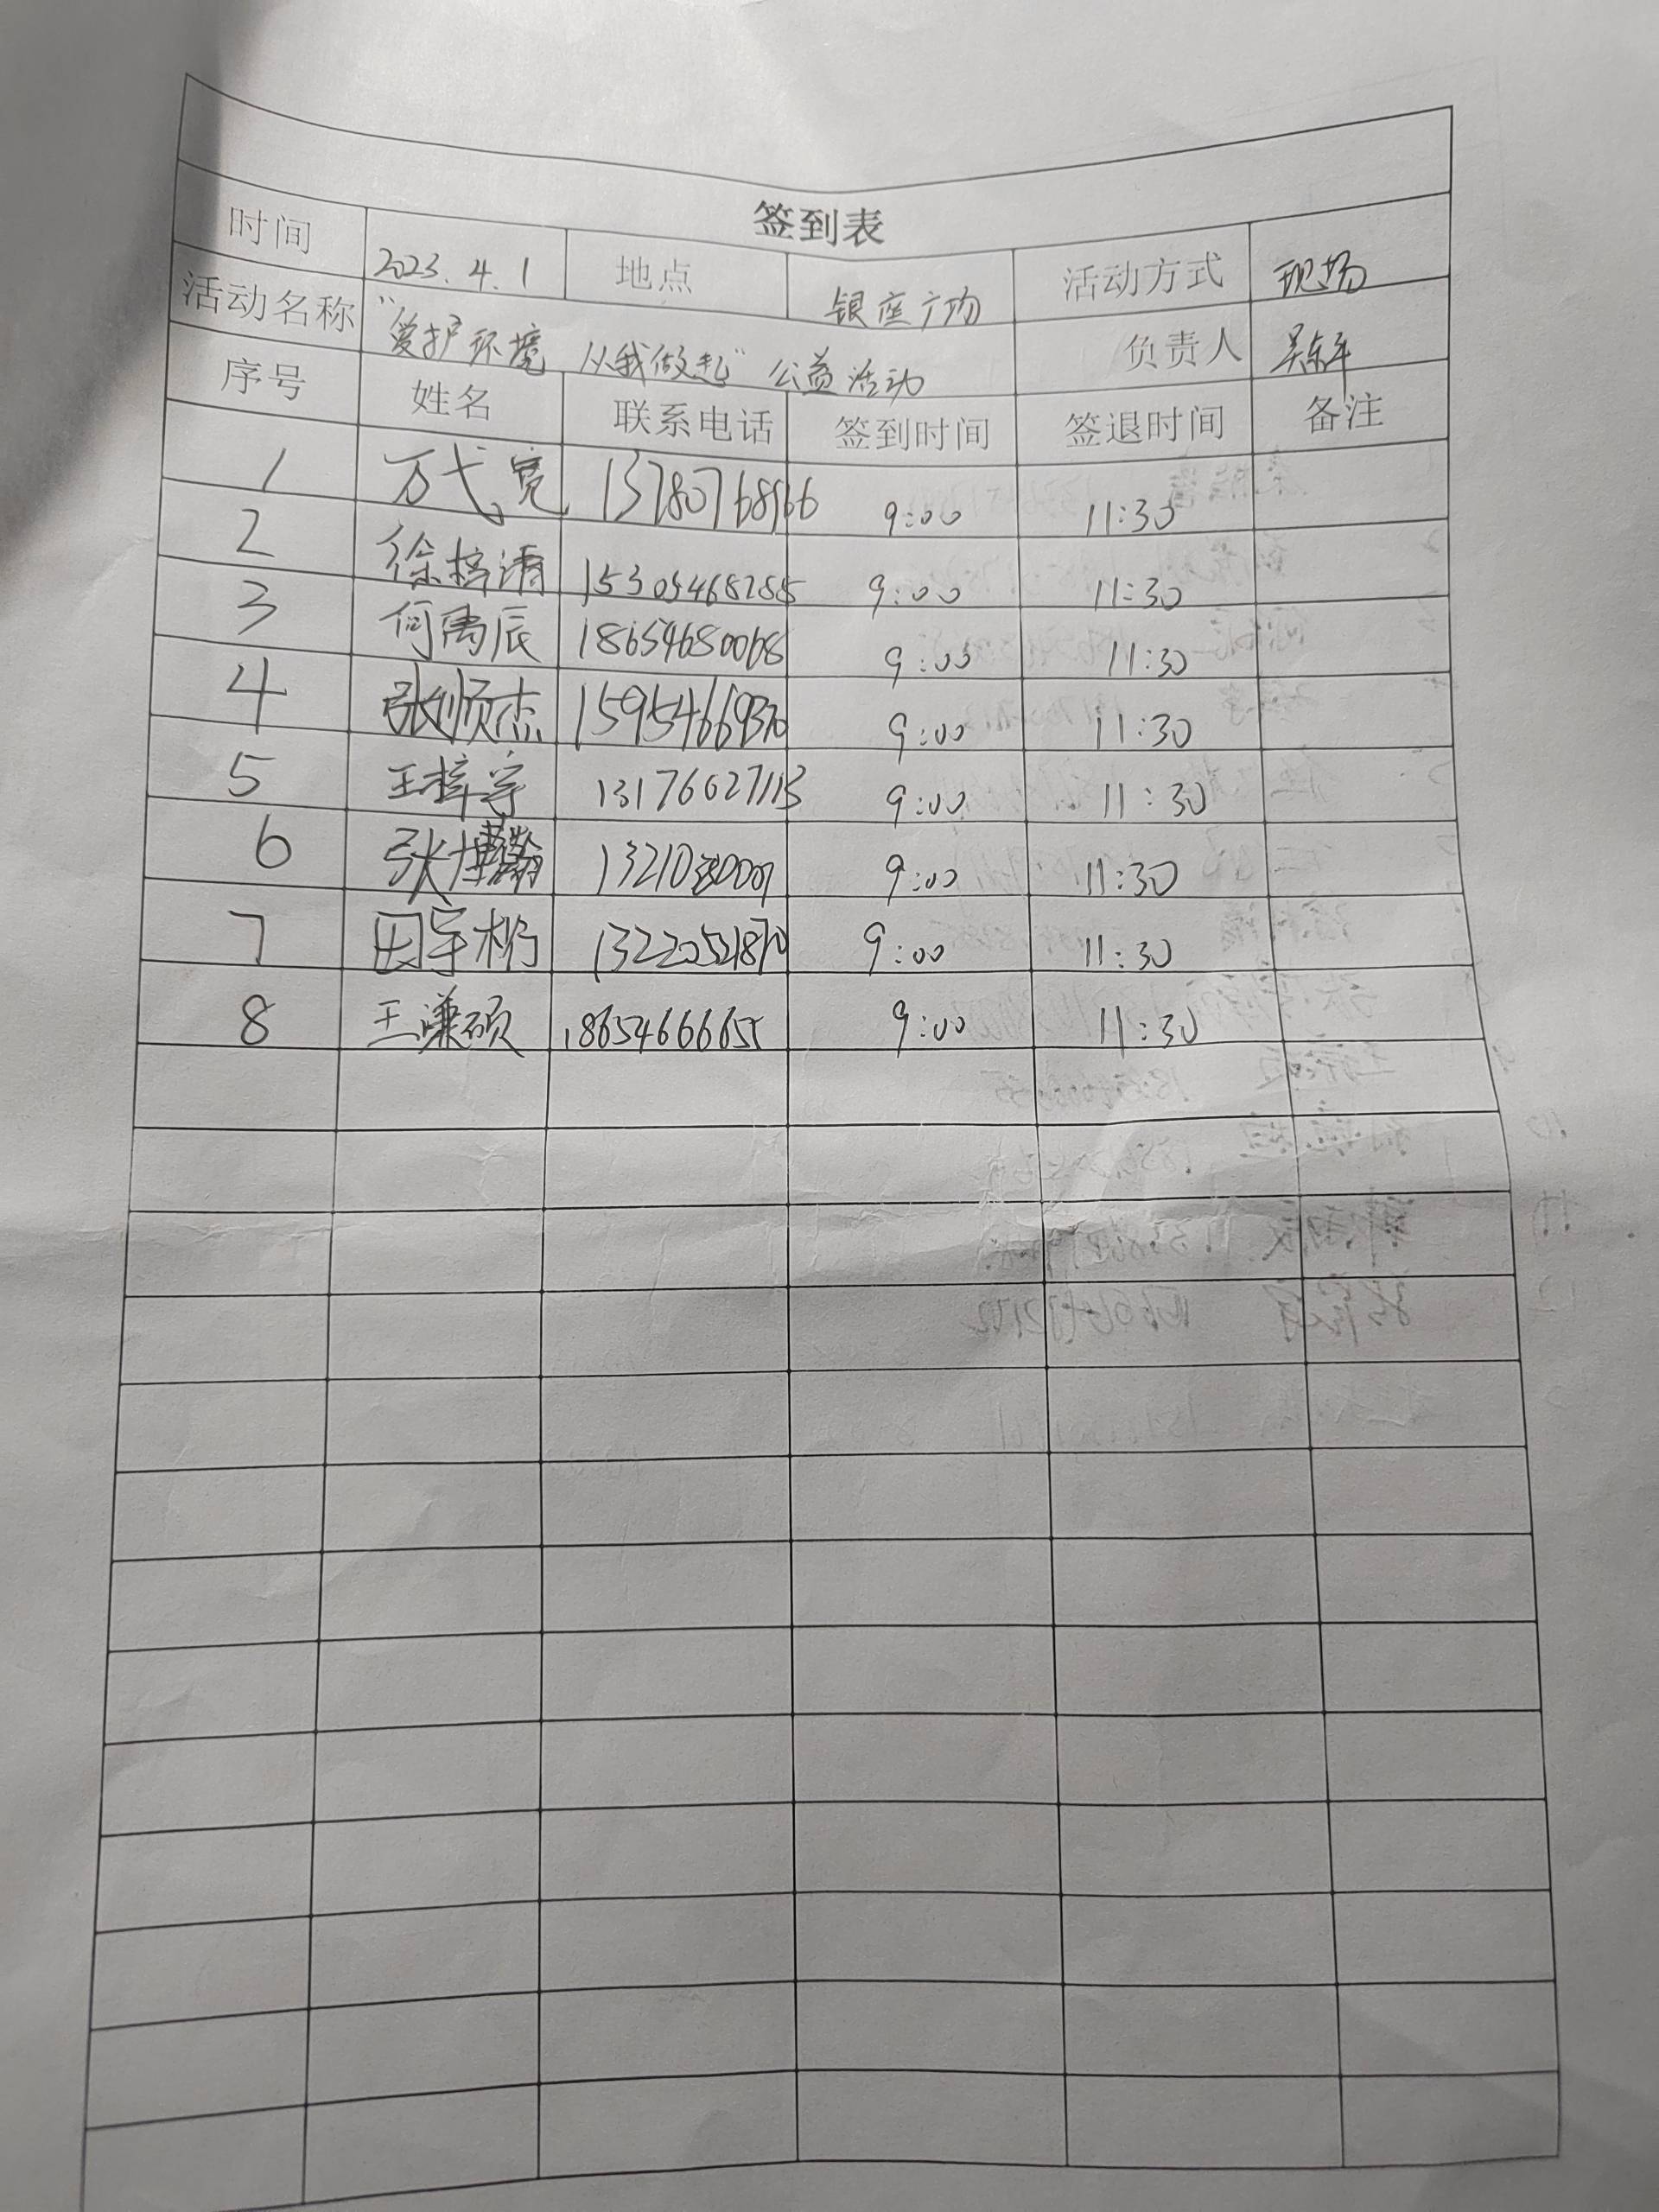 签到表
时间 2023.4.1 地点 银座广场 活动方式 现场
活动名称 "爱护环境 从我做起"公益活动 负责人
序号 姓名 联系电话 签到时间 签退时间 备注
1 万弋宽 13780768966 9:00 11:30
2 徐梓清 9:00 11:30
3 何禹辰 18654680068 9:00 11:30
4 张顺杰 15954669370 9:00 11:30
5 王梓宇 13176627113 9:00 11:30
6 张博瀚 9:00 11:30
7 田宇 13220521870 9:00 11:30
8 王谦硕 18654666655 9:00 11:30